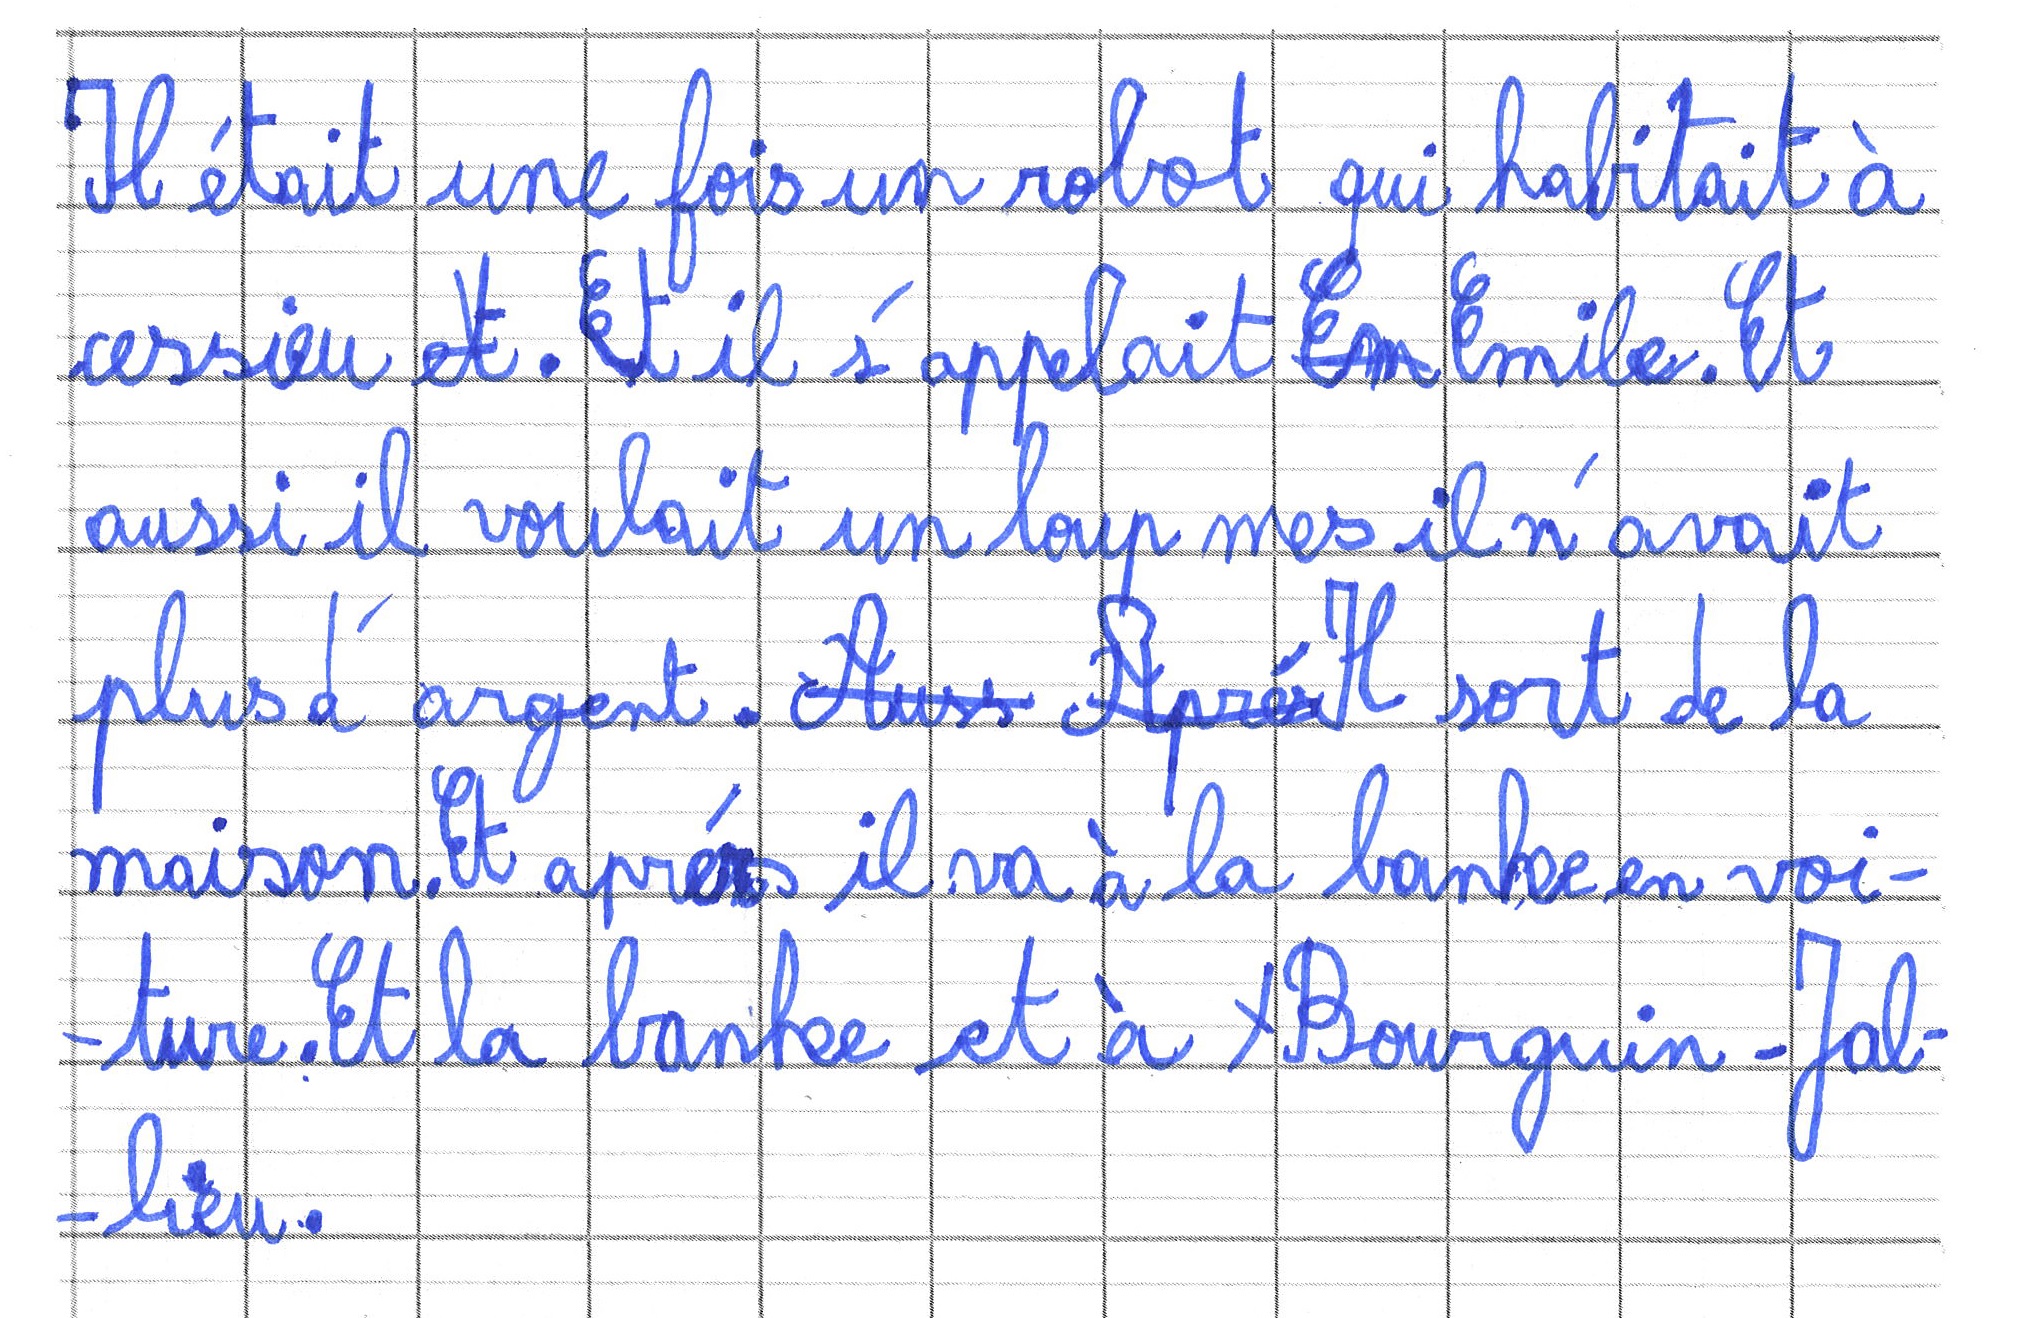 Il était une fois un robot qui habitait à
cessieu et. Et il s'appelait Em Emile. Et
aussi il voulait un loup mes il n'avait
plus d'argent. Auss Aprés Il sort de la
maison. Et aprés il va à la bankee en voi-
-ture. Et la bankee et à Bourguin-Jal-
-lieu.